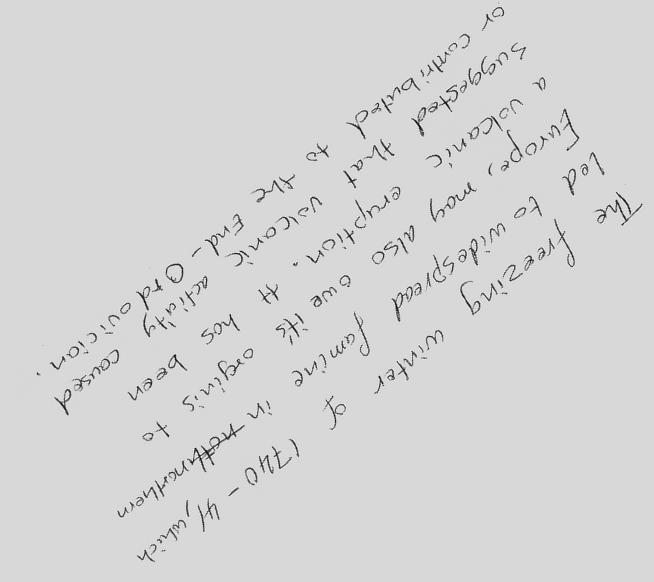 The freezing winter of 1740-41, which
led to widespread famine in northern
Europe, may also owe its orginis to
a volcanic eruption. It has been
suggested that volcanic activity caused
or contributed to the End-Ordovician.